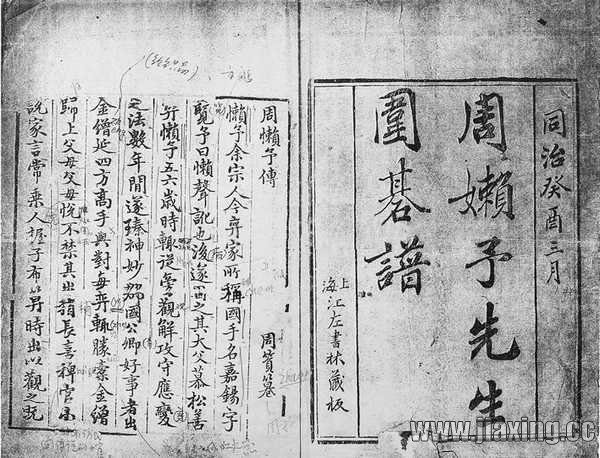 同治癸酉三月
周嬾予先生
圍碁譜
上海江左書林藏板
周懶予傳
周篔篹
懶予余宗人今弈家所稱國手名嘉錫字
覽予曰懶聲訛也後遂因之其大父慕松善
弈懶予五六歲時輒從旁觀解攻守應變
之法數年間遂臻神妙郡國公卿好事者出
金僧延四方高手與對每弈輒勝橐金僧
歸上父母父母悅不禁其出稍長喜稗官小
說家言常乘人握子布算時出以觀之既
www.jiaxing.cc